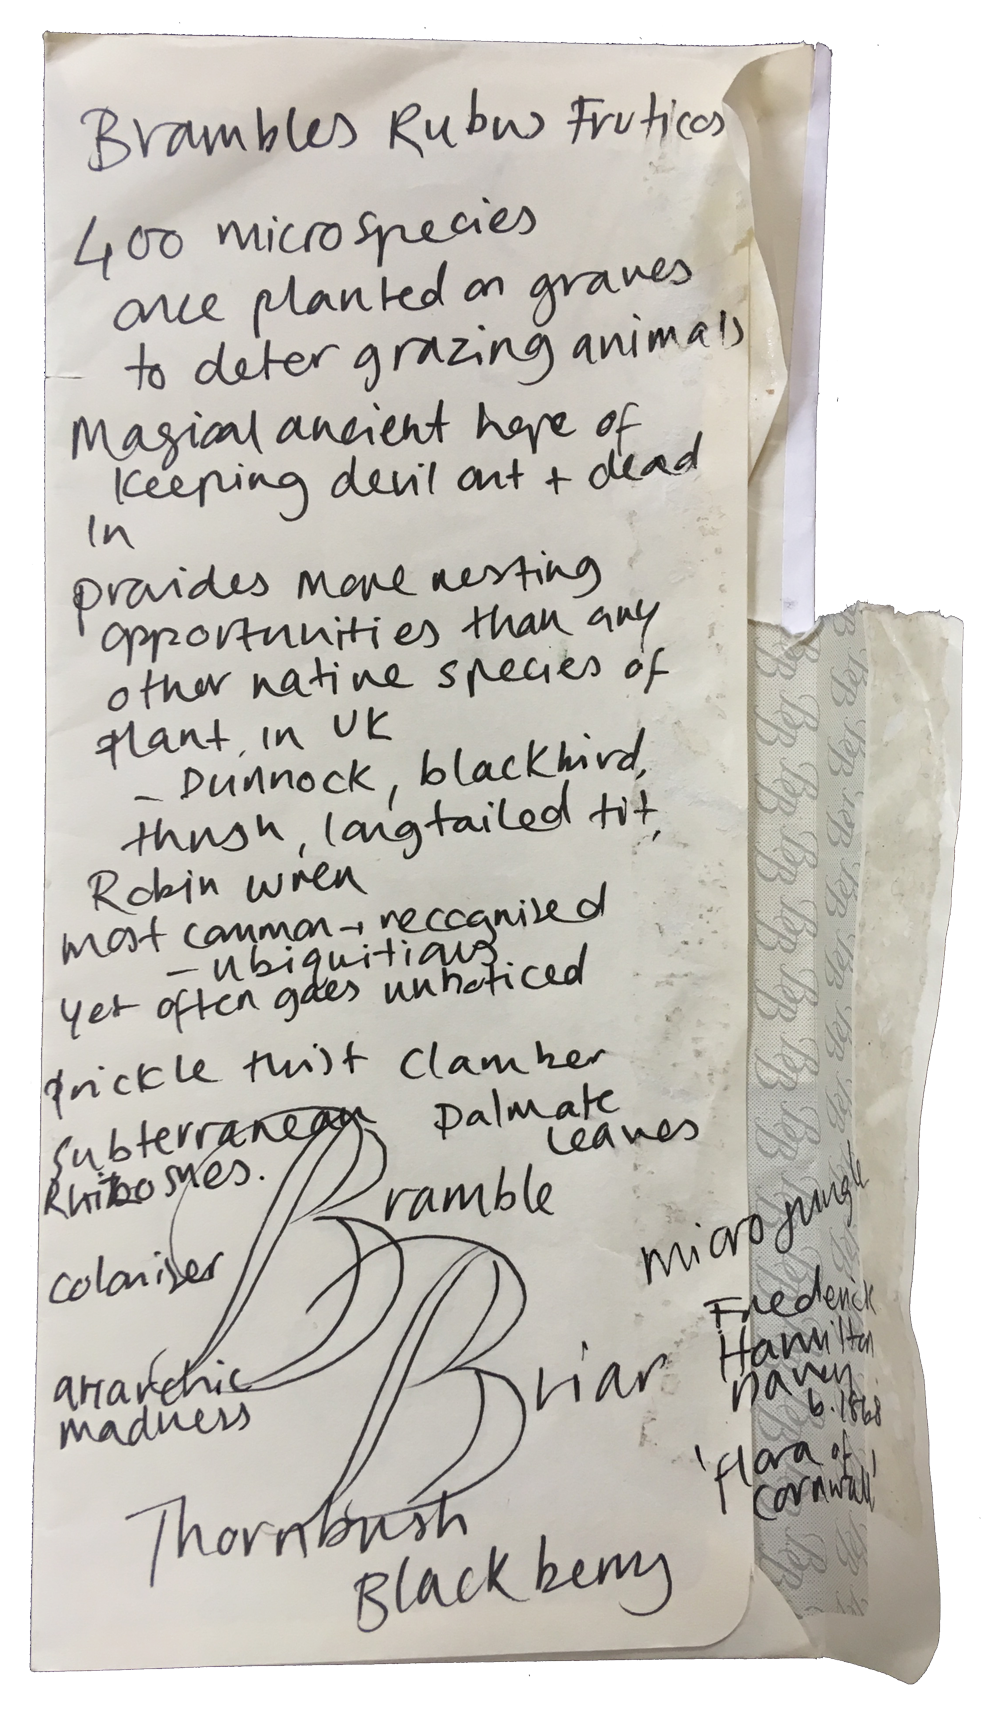 Brambles Rubus Fruticos
400 microspecies
once planted on graves
to deter grazing animals
Magical ancient hope of
Keeping devil out + dead
in
provides more nesting
opportunities than any
other native species of
plant in UK
- Dunnock, blackbird,
thrush, longtailed tit,
Robin wren
most common + reccognised
- ubiquitious
yet often goes unnoticed
prickle twist clamber
Subterranean
Palmate
leaves
Rhibosmes.
Bramble
coloniser
micro jungle
Briar
Frederick
Hamilton
Davey
b. 1868
anarchic
madness
'flora of
cornwall'
Thornbush
Blackberry